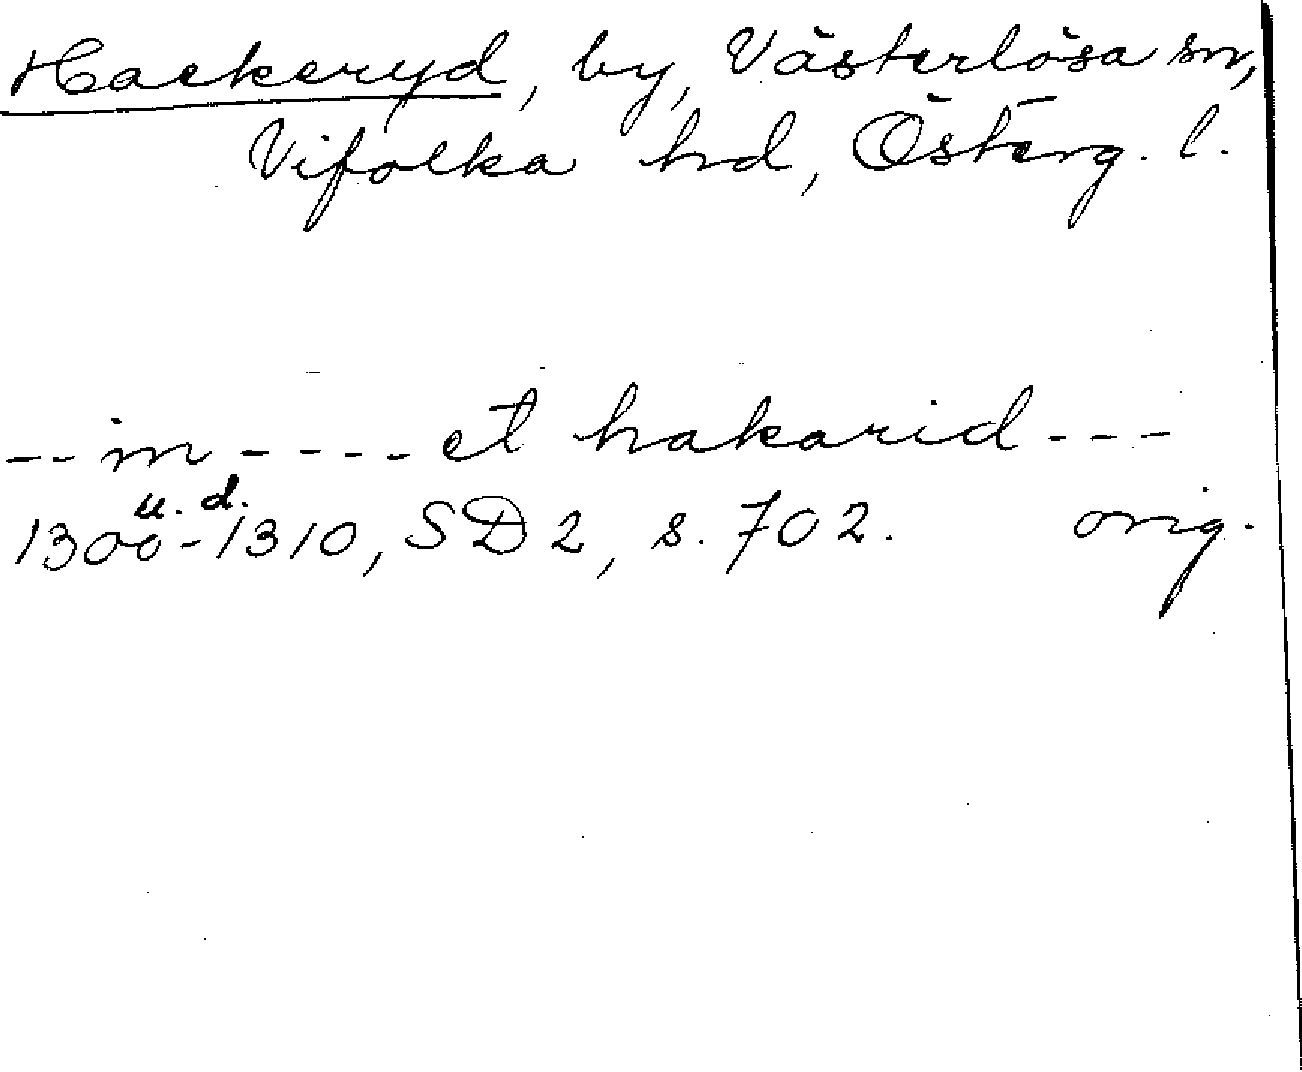 Hackeryd, by, Västerlösa sn,
Vifolka hd, Österg. l.
-- in ---- et hakarid ---
u. d.
1300-1310, SD 2, s. 702. orig.